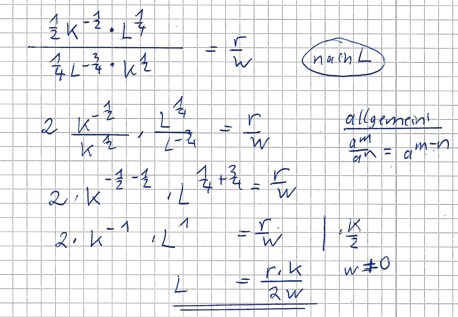 (½ K^(-½) · L^(¼)) / (¼ L^(-¾) · K^(½)) = r/w
nach L
2 K^(-½)/K^(½) · L^(¼)/L^(-¾) = r/w
allgemein:
a^m/a^n = a^(m-n)
2 · K^(-½-½) · L^(¼+¾) = r/w
2 · K^(-1) · L^1 = r/w | · K/2
w ≠ 0
L = (r · K)/(2w)